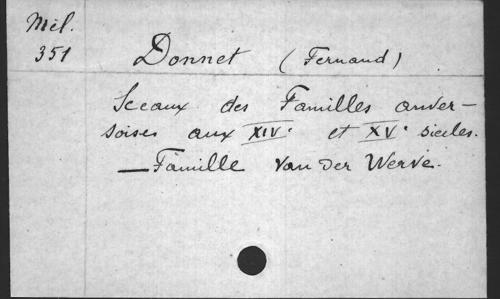 Mél.
351
Donnet (Fernand)
Sceaux des Familles anver-
soises aux XIVᵉ et XVᵉ siecles.
— Famille Van der Werve.